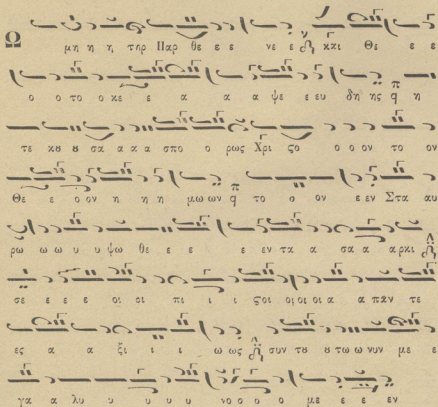 Ω μη η η τηρ Παρ θε ε ε νε ε και Θε ε ε
ο ο το ο κε ε α α α ψε ε ευ δη ης q η
τε κου ου σα α α α σπο ο ρως Χρι ςο ο ο ον το ον
Θε ε ο ον η η η μω ων q το ο ον ε εν Στα αυ
ρω ω ω υ υ ψω θε ε ε ε εν τα α σα α αρκι
σε ε ε ε οι οι πι ι ι ςοι οι οι οι α α παν τε
ες α α ξι ι ι ω ως συν του ου τω ω νυν με ε
γα α λυ υ υ υ υ νο ο ο ο με ε ε εν